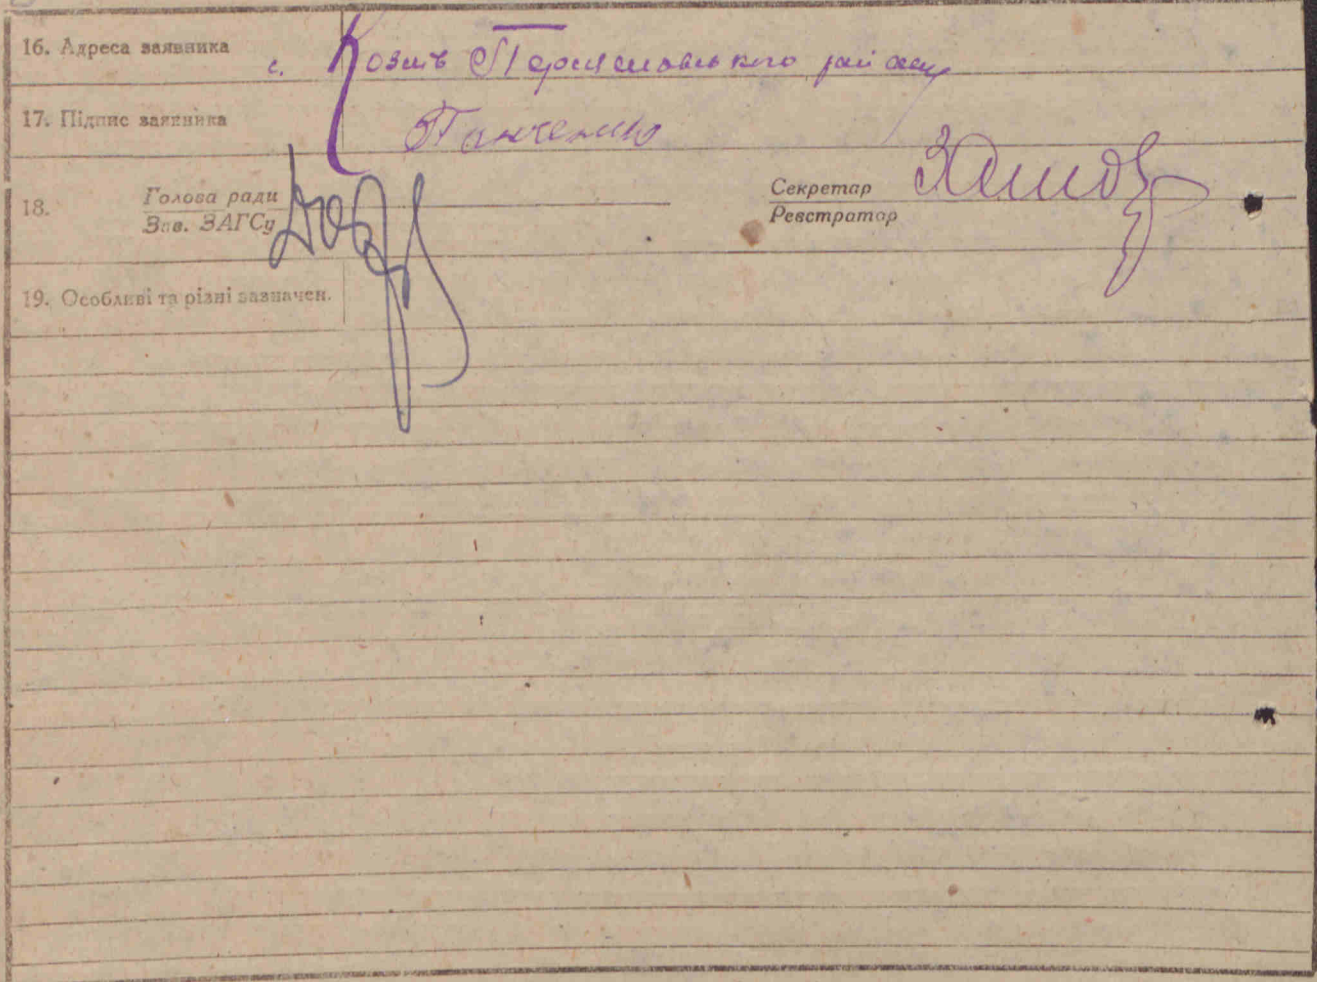 16. Адреса заявника с. Козлів Переяславського району
17. Підпис заявника Панченко
18. Голова ради Секретар
Зав. ЗАГСу Реєстратор
19. Особливі та різні зазначен.